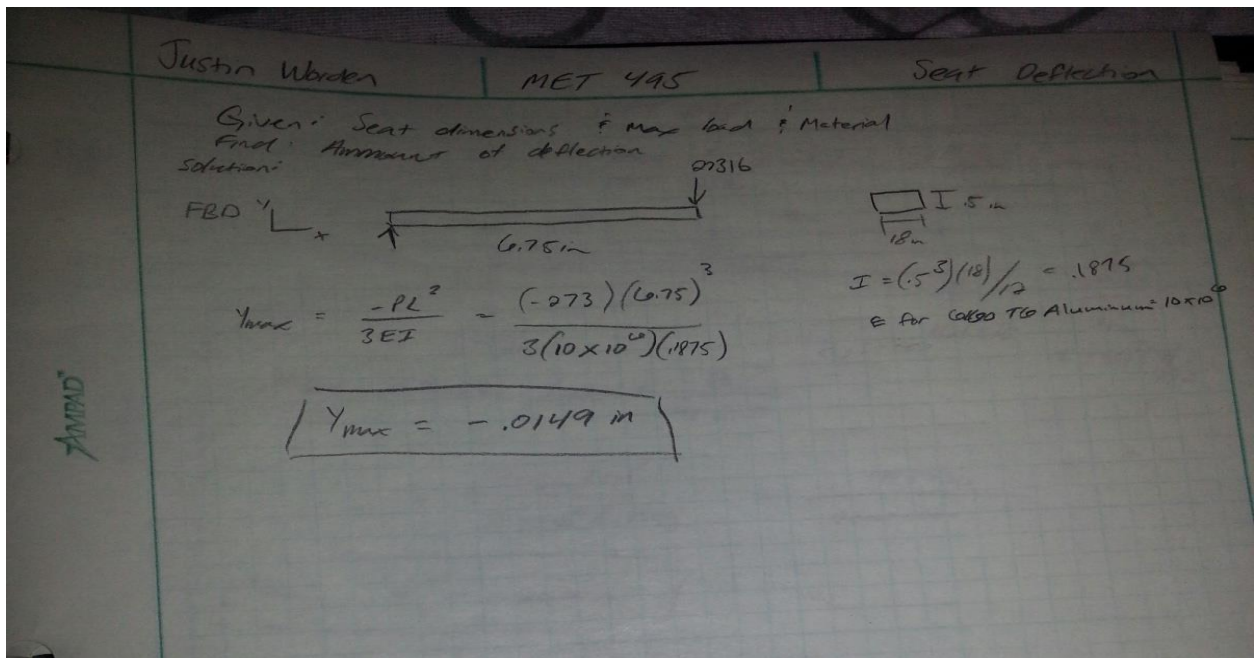 Justin Worden MET 495 Seat Deflection
Given: Seat dimensions & max load & Material
Find: Ammount of deflection
Solution:
273lb
FBD Y
x
6.75in
.5 in
18in
I = (.5³)(18)/12 = .1875
E for 6060 T6 Aluminum = 10x10⁶
Ymax = -PL³/3EI = (-273)(6.75)³/3(10x10⁶)(.1875)
Ymax = -.0149 in
AMPAD™